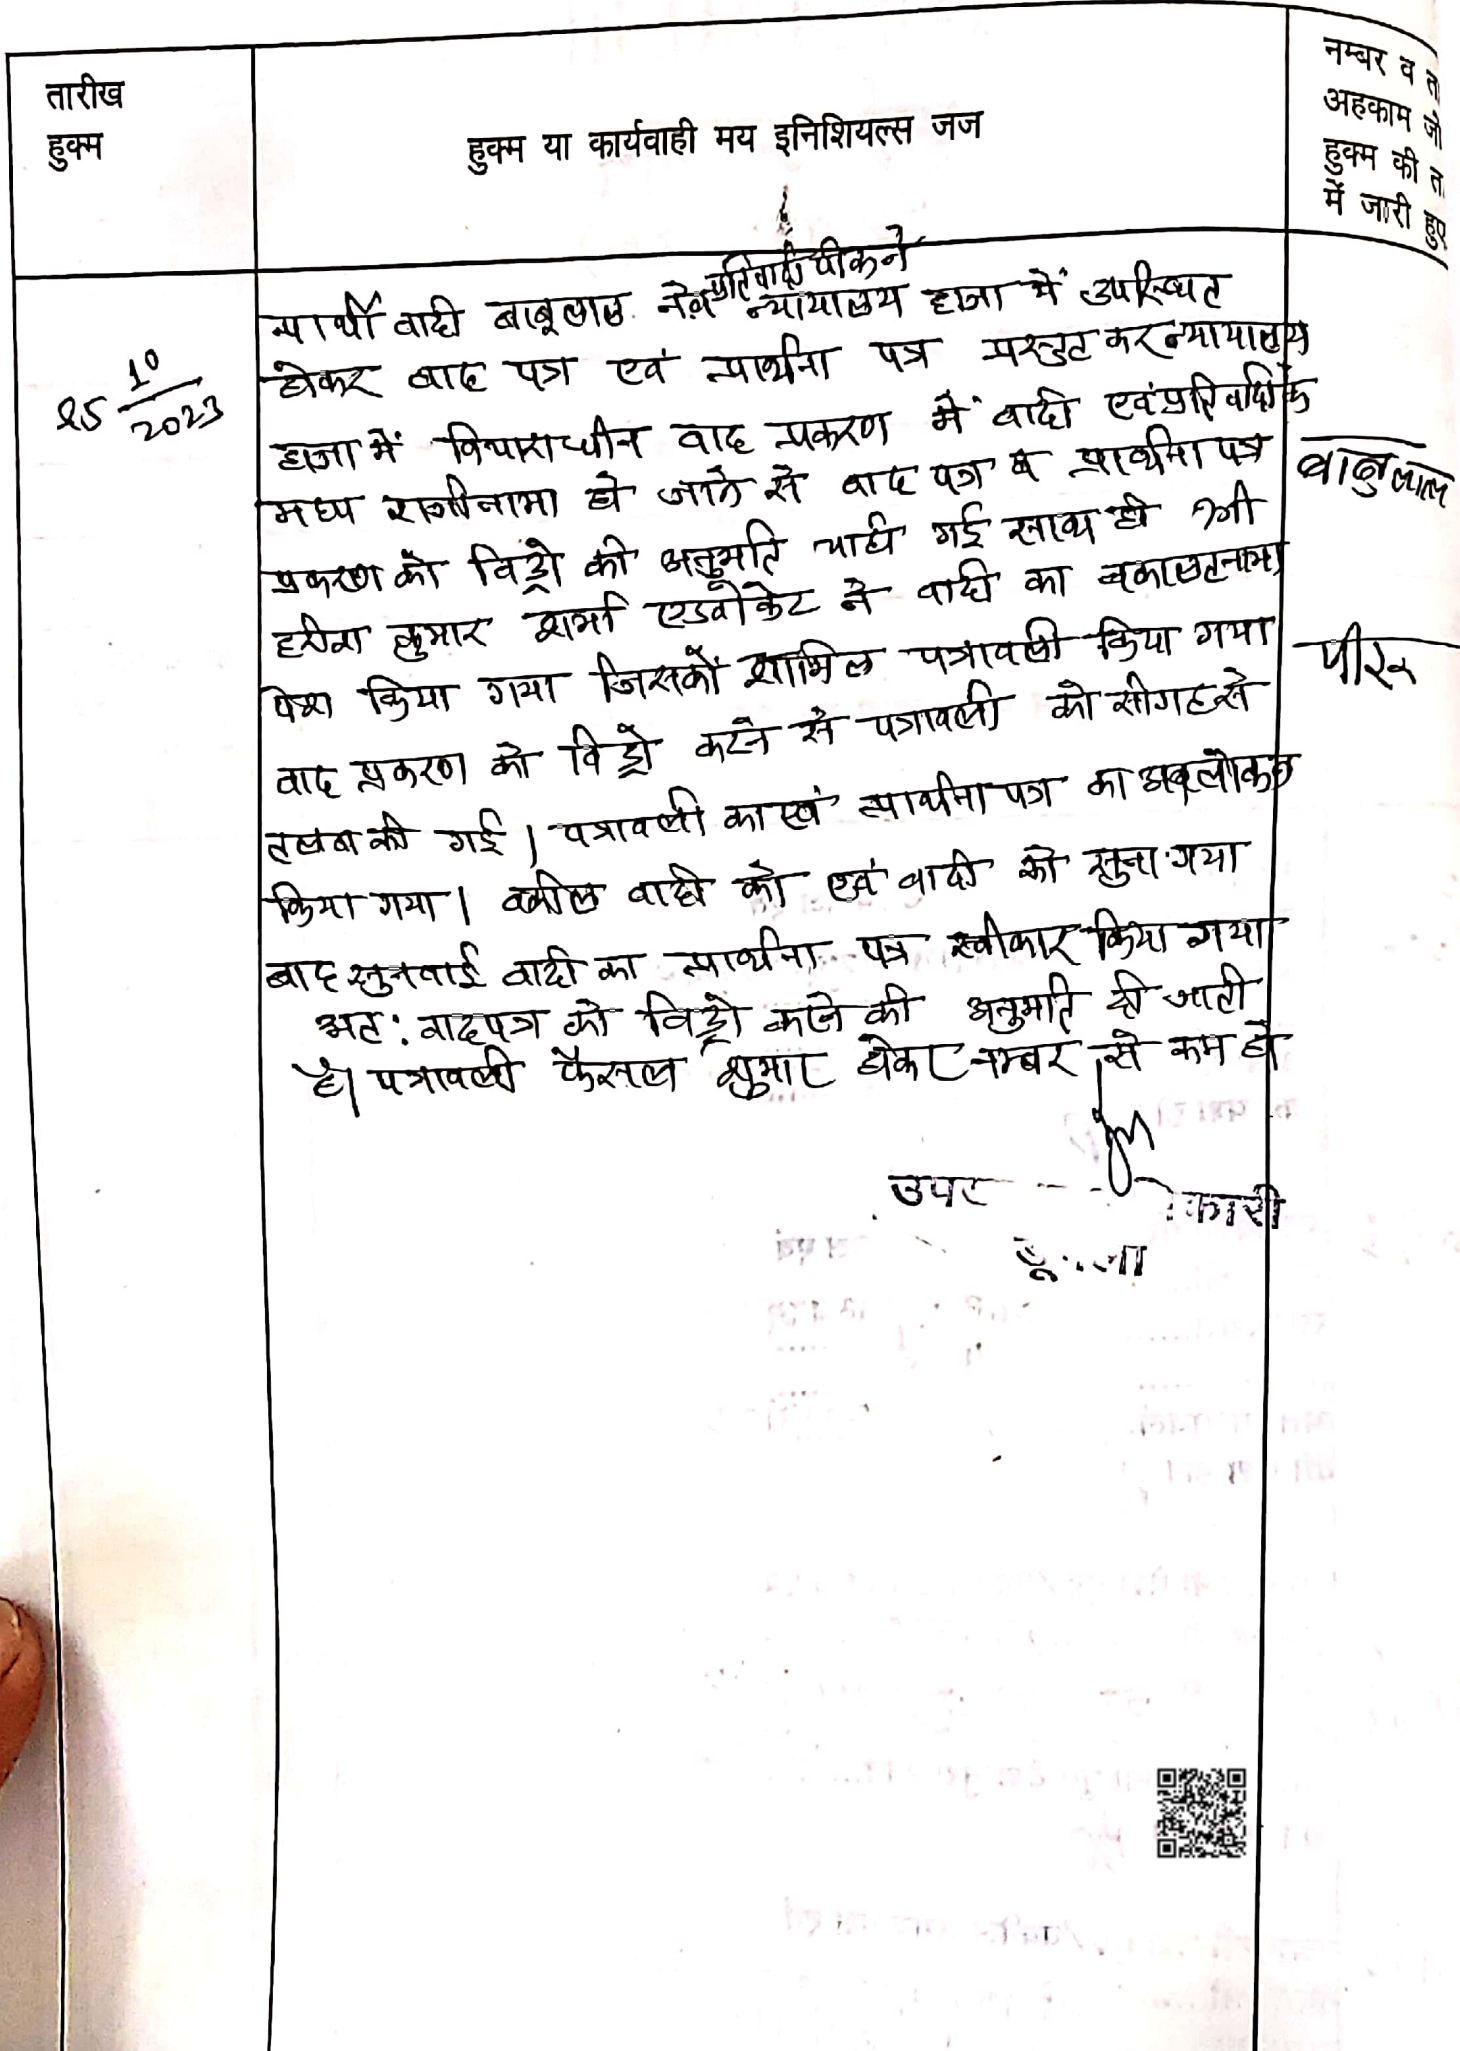 तारीख
हुक्म
हुक्म या कार्यवाही मय इनिशियल्स जज
नम्बर व
अहकाम जो
हुक्म की
में जारी हुए
25 10/2023
प्रतिवादी ने
प्रार्थी वादी बाबूलाल न्यायालय हाजा में उपस्थित
होकर वाद पत्र एवं प्रार्थना पत्र प्रस्तुत कर न्यायालय
हाजा में विचाराधीन वाद प्रकरण में वादी एवं प्रतिवादी के
मध्य राजीनामा हो जाने से वाद पत्र व प्रार्थना पत्र
प्रकरण को विड्रो की अनुमति चाही गई साथ ही श्री
कुमार शर्मा एडवोकेट ने वादी का वकालतनामा
पेश किया गया जिसको शामिल पत्रावली किया गया
वाद प्रकरण को विड्रो करने से पत्रावली को सीगह से
तलब की गई। पत्रावली का एवं प्रार्थना पत्र का अवलोकन
किया गया। वकील वादी को एवं वादी को सुना गया
बाद सुनवाई वादी का प्रार्थना पत्र स्वीकार किया गया
अत: वादपत्र को विड्रो करने की अनुमति दी जाती
है। पत्रावली फैसल शुमार होकर नम्बर से कम हो
बाबुलाल
उपर